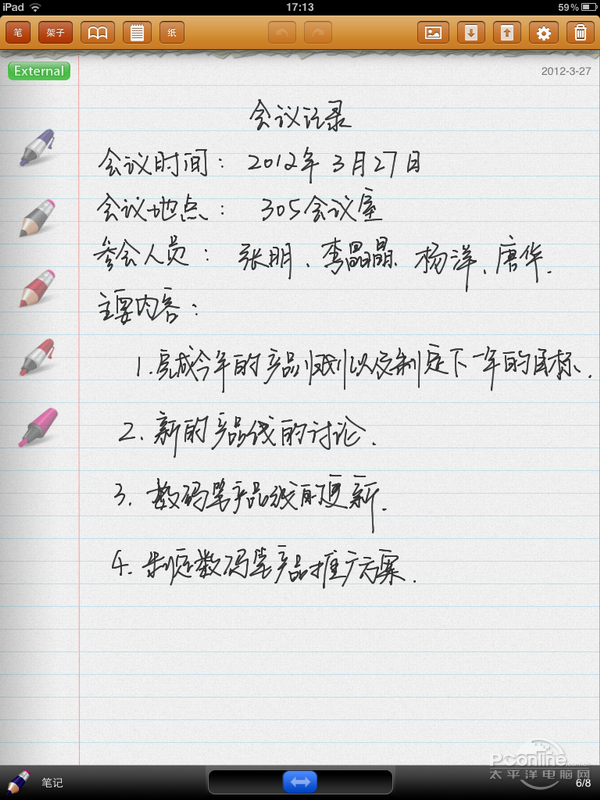 iPad 17:13 59%
笔 架子 纸
External 2012-3-27
会议记录
会议时间： 2012年3月27日
会议地点： 305会议室
参会人员： 张明、李晶晶、杨洋、唐华.
主要内容：
1.完成今年的产品规划以及制定下一年的目标.
2.新的产品线的讨论.
3.数码笔产品线的更新.
4.制定数码笔产品推广方案.
PConline
太平洋电脑网
笔记 6/8